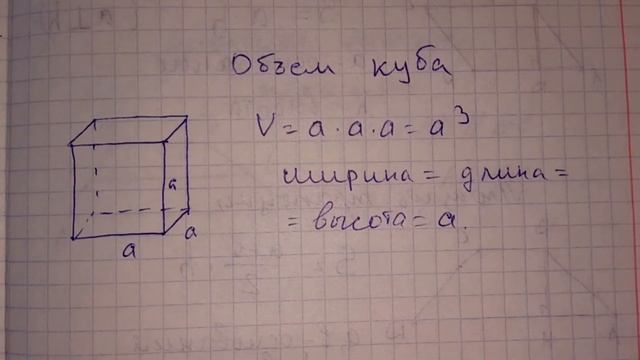 Объем куба
V = a · a · a = a³
ширина = длина =
= высота = a.
a
a
a